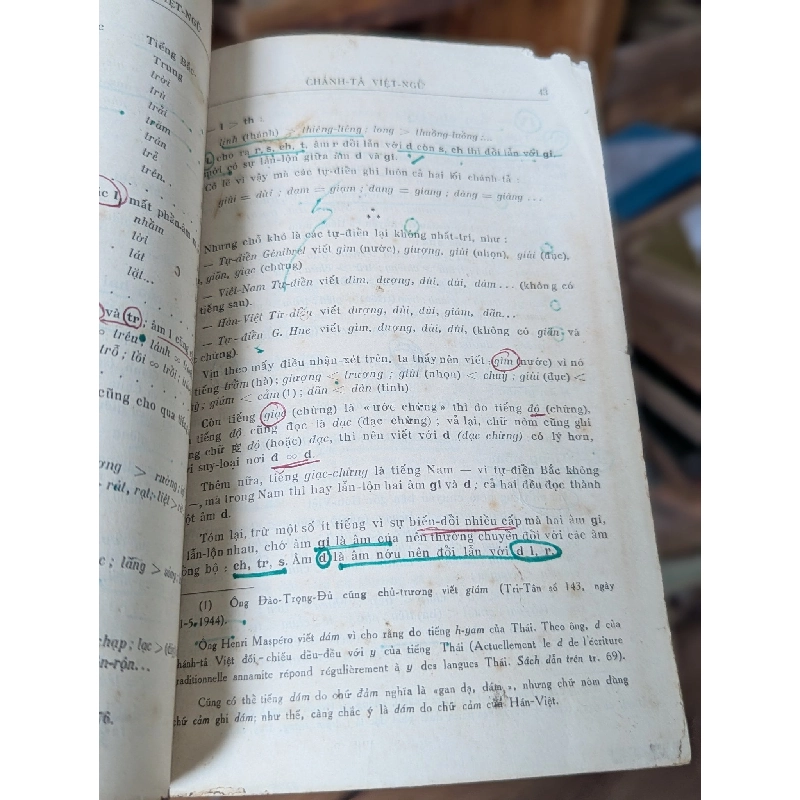 VIỆT-NGỮ
Tiếng Bắc,
Trung
trời
trũ
trái
trờm
trán
trễ
trên..
mất phần
nhầm
lời
lát
lật...
và tr; âm l cũng
trên; lánh
trỗ; lời ∞ trời
cũng cho qua
> rường;
rát, rạt; liệt >
lắng >
hạp; lạc >
ồn-rộn...
76.
CHÁNH-TẢ VIỆT-NGỮ
43
l > th :
lịnh (thánh) > thiêng-liêng; long > thuồng-luồng;...
cho ra r, s, ch, t, âm r đổi lẫn với d còn s, ch thì đổi lẫn với gi.
có sự lẫn-lộn giữa âm d và gi.
Có lẽ vì vậy mà các tự-điển ghi luôn cả hai lối chánh-tả :
giùi = dùi; dạm = giạm; dang = giang; dàng = giàng ...
Nhưng chỗ khó là các tự-điển lại không nhất-trí, như :
— Tự-điển Génibrel viết gìm (nước), giượng, giùi (nhọn), giùi (đục),
giãn, giạc (chừng)
— Việt-Nam Tự-điển viết dìm, dượng, dùi, dùi, dám... (không có
tiếng sau).
— Hán-Việt Từ-điển viết dượng, dùi, dùi, giám, dãn...
— Tự-điển G. Hue viết gìm, dượng, dùi, dùi, (không có giãn và
chừng).
Vin theo mấy điều nhận-xét trên, ta thấy nên viết : gìm (nước) vì nó
tiếng trầm (hà); giượng < trượng; giùi (nhọn) < chuỳ; giùi (đục) <
giám < cảm (1); dãn < dân (tình)
Còn tiếng giạc (chừng) là «ước chừng» thì do tiếng độ (chừng),
tiếng độ cũng đọc là đạc (đạc chừng); vả lại, chữ nôm cũng ghi
chữ 度 độ (hoặc) đạc, thì nên viết với d (dạc chừng) có lý hơn,
suy-loại nơi d ∞ đ.
Thêm nữa, tiếng giạc-chừng là tiếng Nam — vì tự-điển Bắc không
—, mà trong Nam thì hay lẫn-lộn hai âm gi và d; cả hai đều đọc thành
một âm d.
Tóm lại, trừ một số ít tiếng vì sự biến-đổi nhiều cấp mà hai âm gi,
lẫn-lộn nhau, chớ âm gi là âm của nên thường chuyển đổi với các âm
đồng bộ : ch, tr, s. Âm d là âm nớu nên đổi lẫn với đ l, r.
(1) Ông Đào-Trọng-Đủ cũng chủ-trương viết giám (Tri-Tân số 143, ngày
1-5-1944).
Ông Henri Maspéro viết dám vì cho rằng do tiếng h-yam của Thái. Theo ông, d của
chánh-tả Việt đối-chiếu đều-đều với y của tiếng Thái (Actuellement le d de l'écriture
traditionnelle annamite répond régulièrement à y des langues Thái. Sách dẫn trên tr. 69).
Cũng có thể tiếng dám do chữ đảm nghĩa là «gan dạ, dám», nhưng chữ nôm dùng
chữ cảm ghi dám; như thế, càng chắc ý là dám do chữ cảm của Hán-Việt.